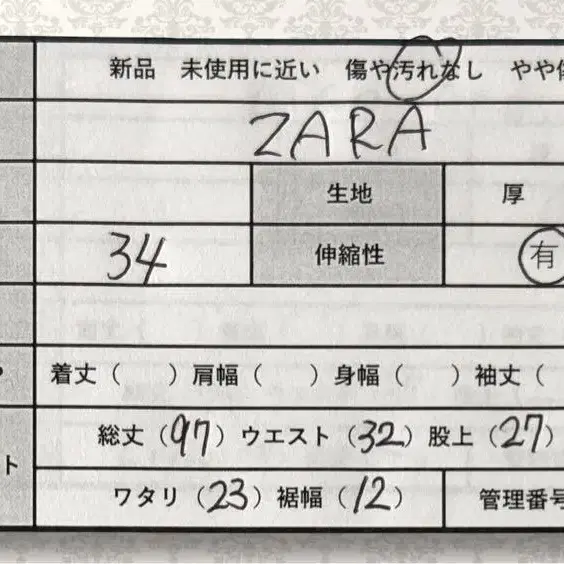 新品 未使用に近い 傷や汚れなし やや傷
ZARA
生地 厚
34 伸縮性 有
着丈( )肩幅( )身幅( )袖丈(
総丈(97)ウエスト(32)股上(27)
ト
ワタリ(23)裾幅(12) 管理番号